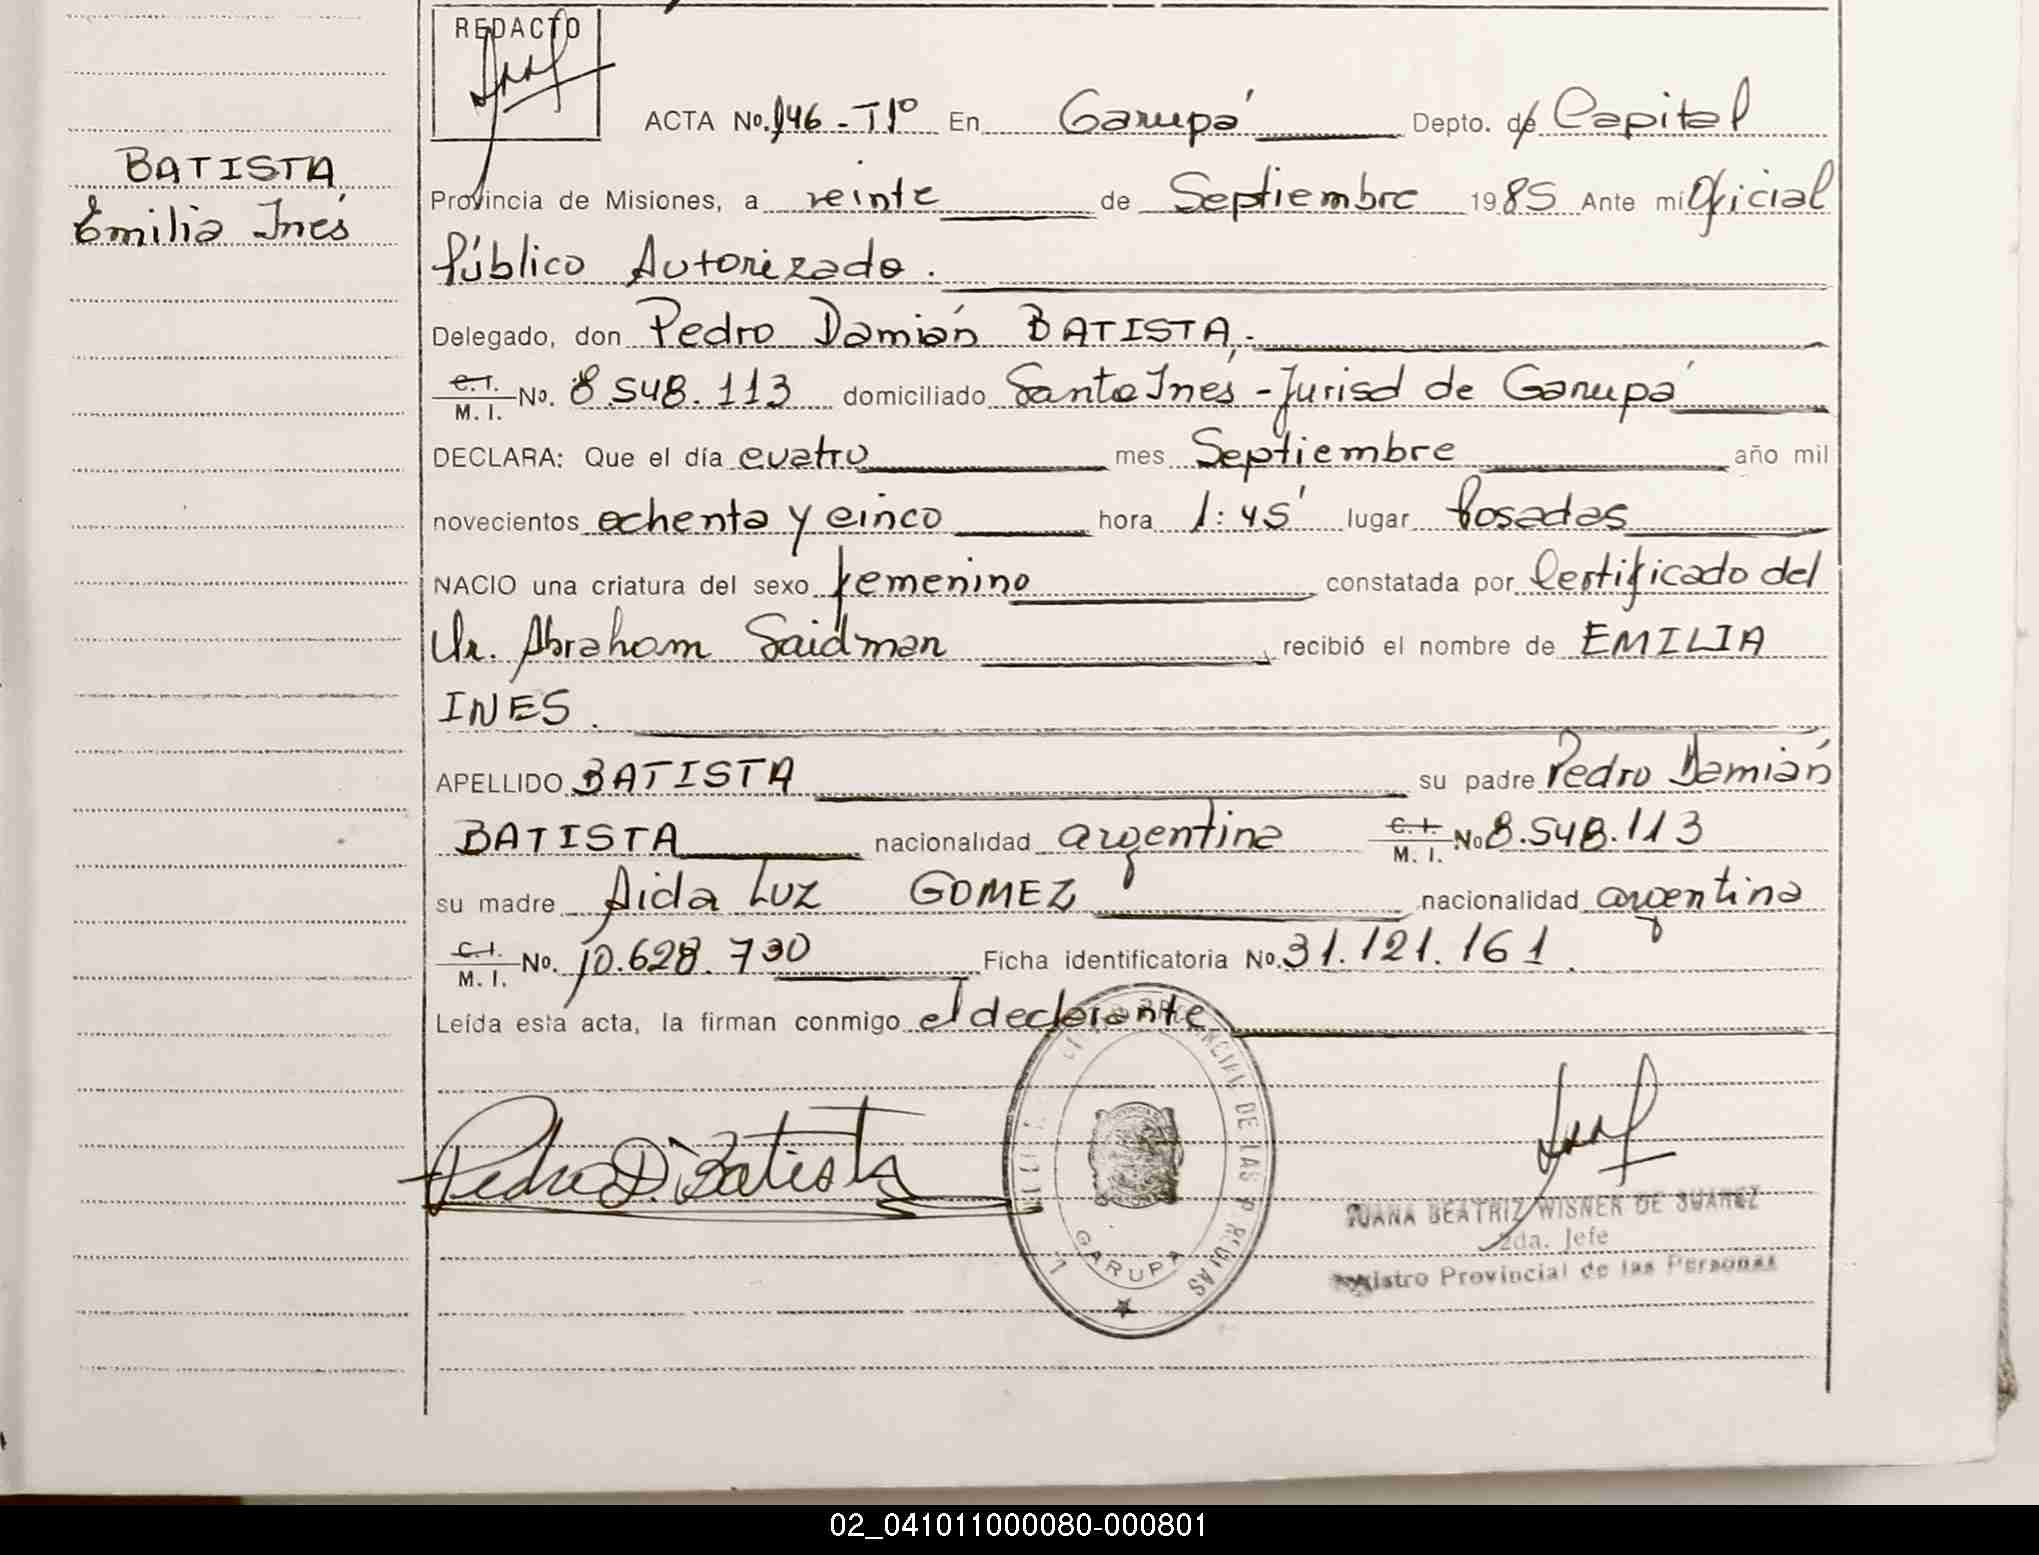 REDACTO
ACTA No. 146 - Tº 1º En Garupá Depto. de Capital
BATISTA
Emilia Inés
Provincia de Misiones, a veinte de Septiembre 1985 Ante mi Oficial
Público Autorizado.
Delegado, don Pedro Damián BATISTA.-
C.I. M. I. No. 8.548.113 domiciliado Santa Inés - Jurisd de Garupá
DECLARA: Que el día cuatro mes Septiembre año mil
novecientos ochenta y cinco hora 1:45' lugar Posadas
NACIO una criatura del sexo femenino constatada por Certificado del
Dr. Abraham Saidman recibió el nombre de EMILIA
INES.
APELLIDO BATISTA su padre Pedro Damián
BATISTA nacionalidad argentina C.I. M. I. No 8.548.113
su madre Aida Luz GOMEZ nacionalidad argentina
C.I. M. I. No. 10.628.730 Ficha identificatoria No. 31.121.161.
Leída esta acta, la firman conmigo el declarante
Pedro D. Batista
PROVINCIAL DE LAS
GARUPA
JUANA BEATRIZ WISNER DE SUAREZ
2da. Jefe
Registro Provincial de las Personas
02_041011000080-000801